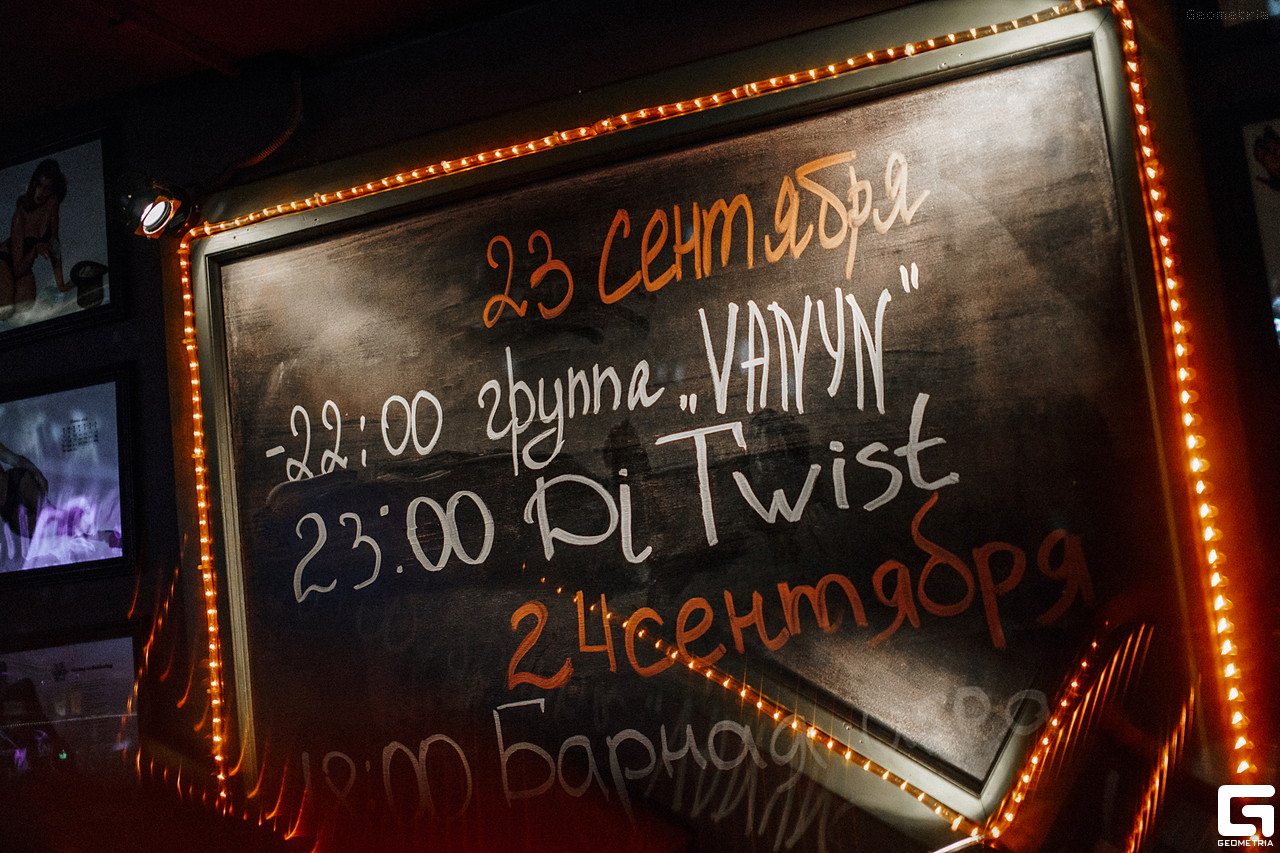 Geometria
23 Сентября
-22:00 группа „VANYN"
23:00 Dj Twist
24 сентября
18:00
GEOMETRIA